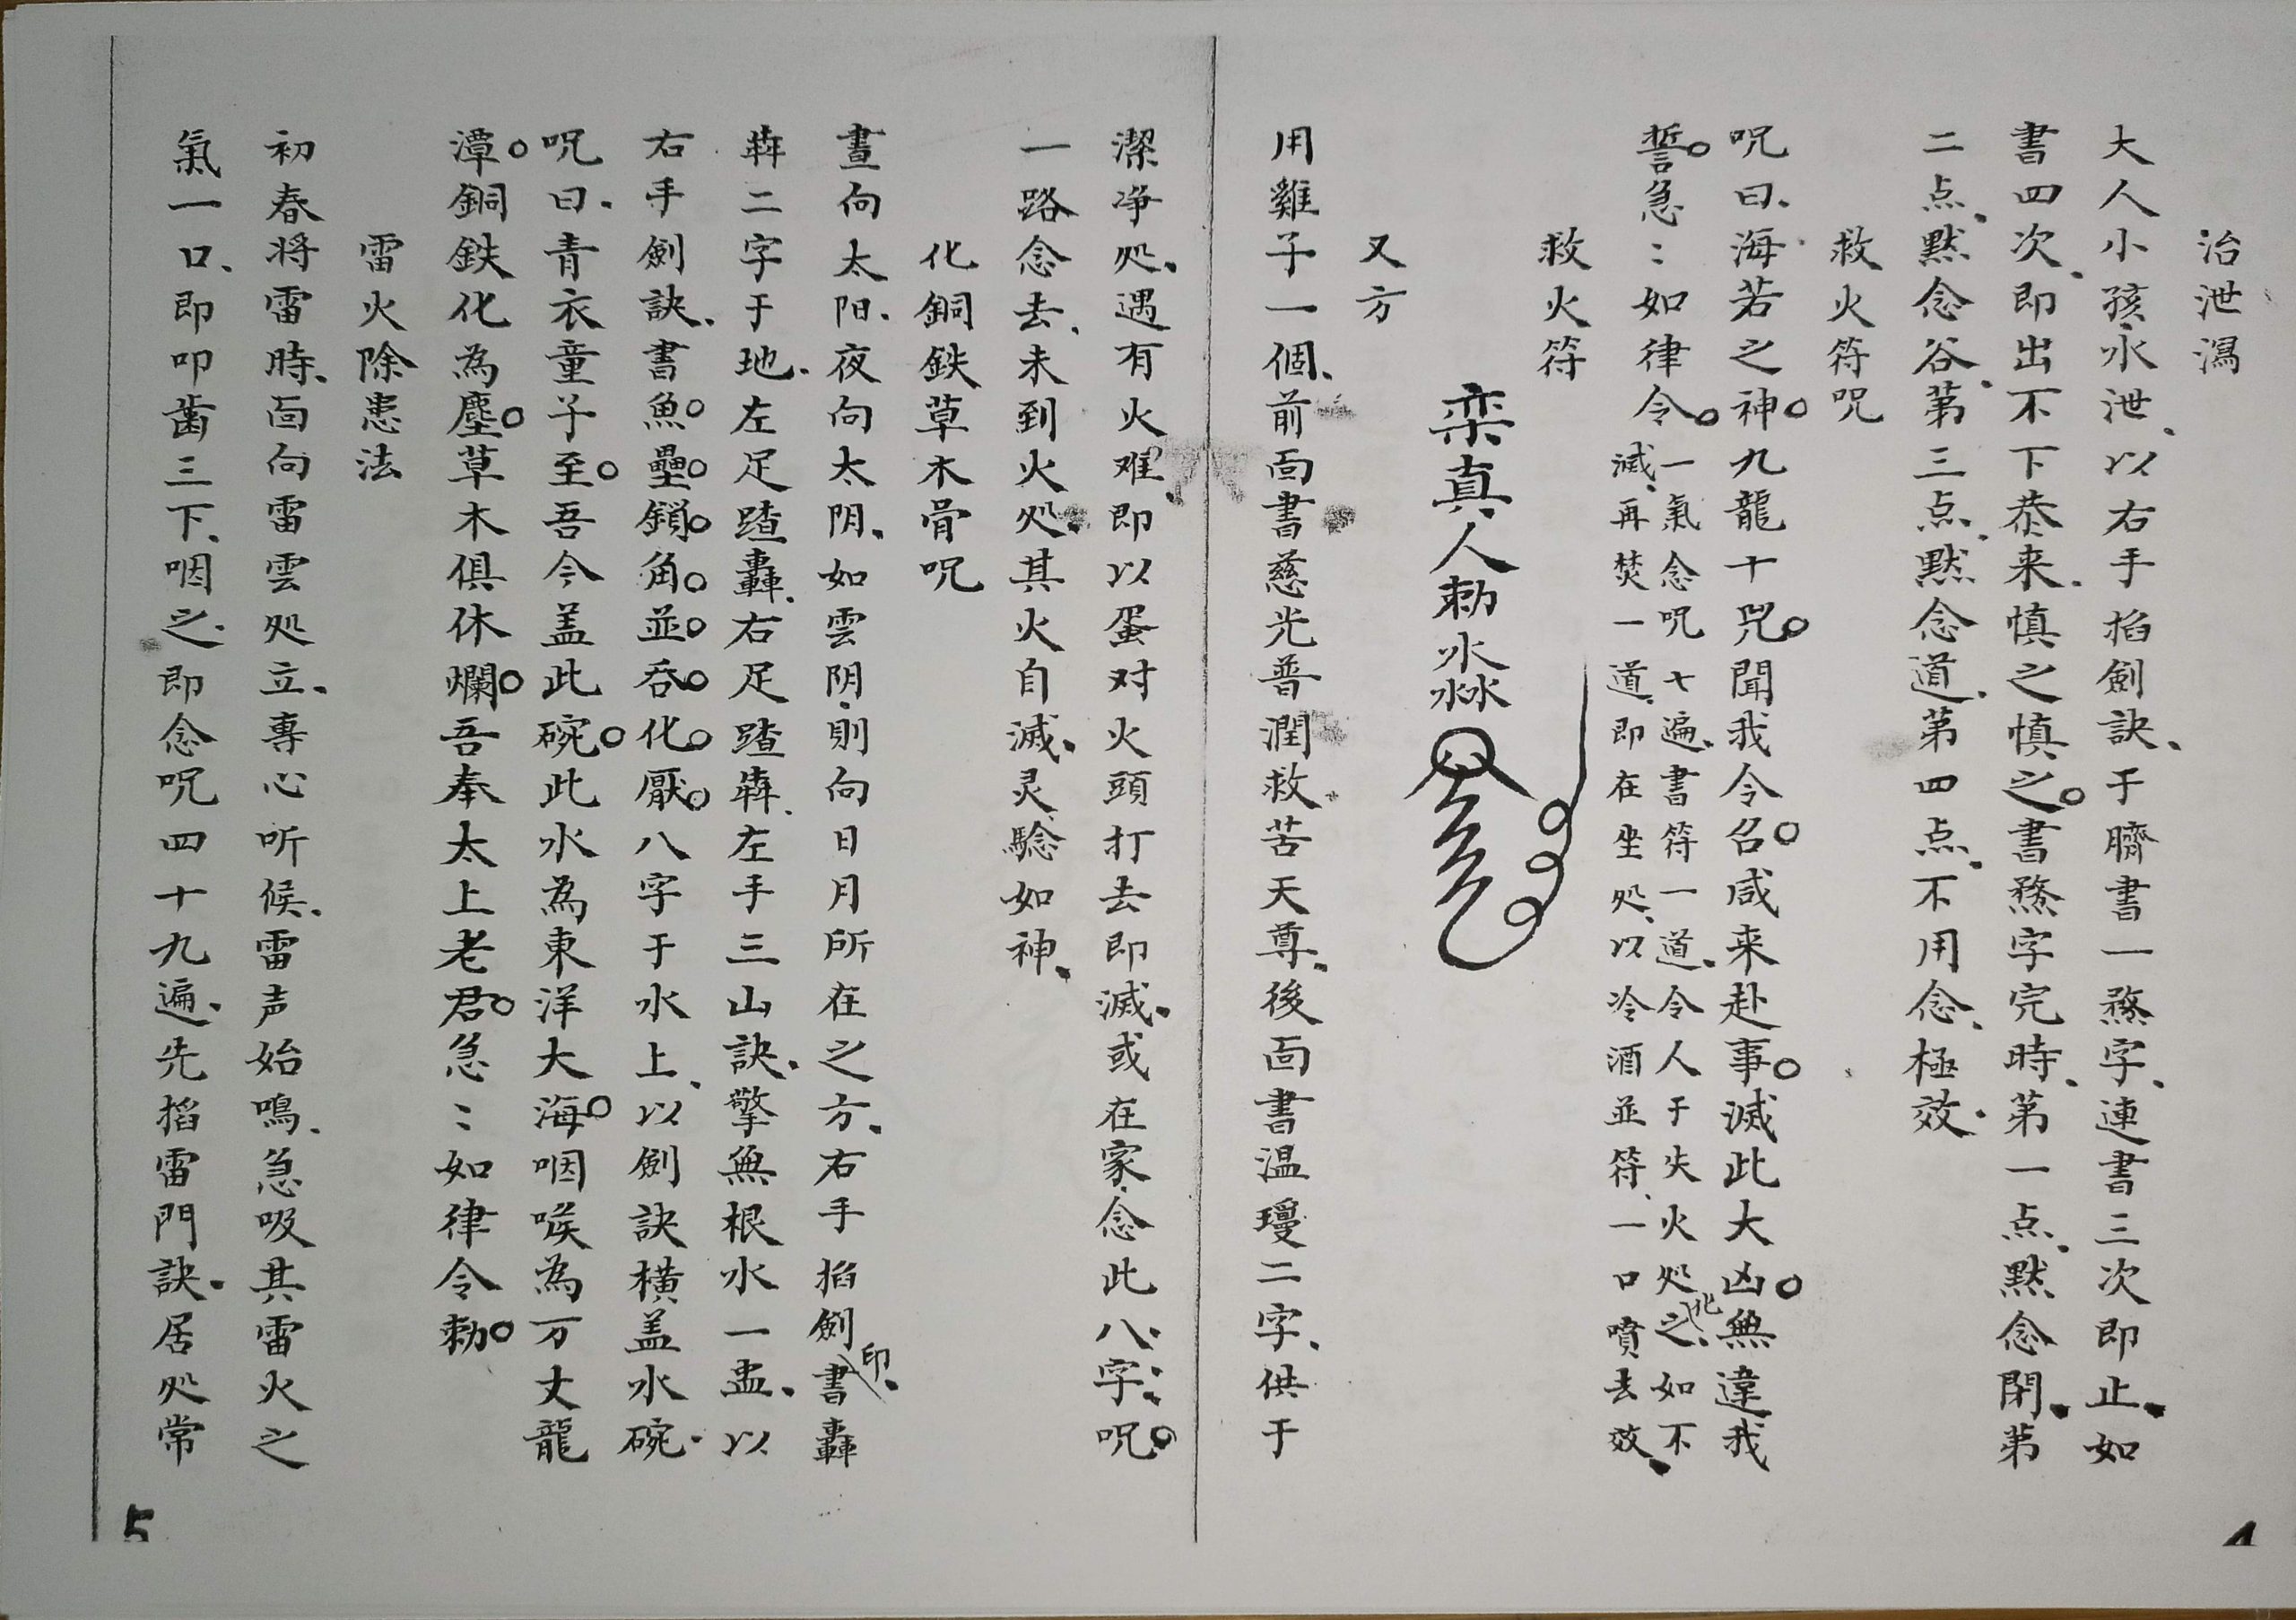 治泄瀉
大人小孩水泄、以右手掐劍訣、于臍書一鶩字、連書三次即止、如
書四次、即出不下恭来、慎之慎之。書鶩字完時、第一点、黙念閉、第
二点、黙念谷、第三点、黙念道、第四点、不用念、極效、
救火符咒
咒曰、海若之神。九龍十咒。聞我令召。咸来赴事。滅此大凶。無違我
誓。急：如律令。
一氣念咒七遍、書符一道、令人于失火処之北、如不
滅、再焚一道、即在坐処、以冷酒並符、一口噴去效、
救火符
栾真人勅水淼
又方
用雞子一個、前面書慈光普潤救苦天尊、後面書温瓊二字、供于
4
潔净処、遇有火难、即以蛋对火頭打去即滅、或在家、念此八字咒。
一路念去、未到火処、其火自滅、灵騐如神、
化銅鉄草木骨咒
晝向太阳、夜向太阴、如雲阴、則向日月所在之方、右手掐劍印、書轟
犇二字于地、左足踏轟、右足踏犇、左手三山訣、擎無根水一盂、以
右手劍訣、書魚。壘。鎖。角。並。吞。化。厭。八字于水上、以劍訣橫盖水碗、
咒曰、青衣童子至。吾今盖此碗。此水為東洋大海。咽喉為万丈龍
潭。銅鉄化為塵。草木俱休爛。吾奉太上老君。急：如律令勅。
雷火除患法
初春将雷時、面向雷雲処立、專心听候、雷声始鳴、急吸其雷火之
氣一口、即叩齒三下、咽之、即念咒四十九遍、先掐雷門訣、居処常
5